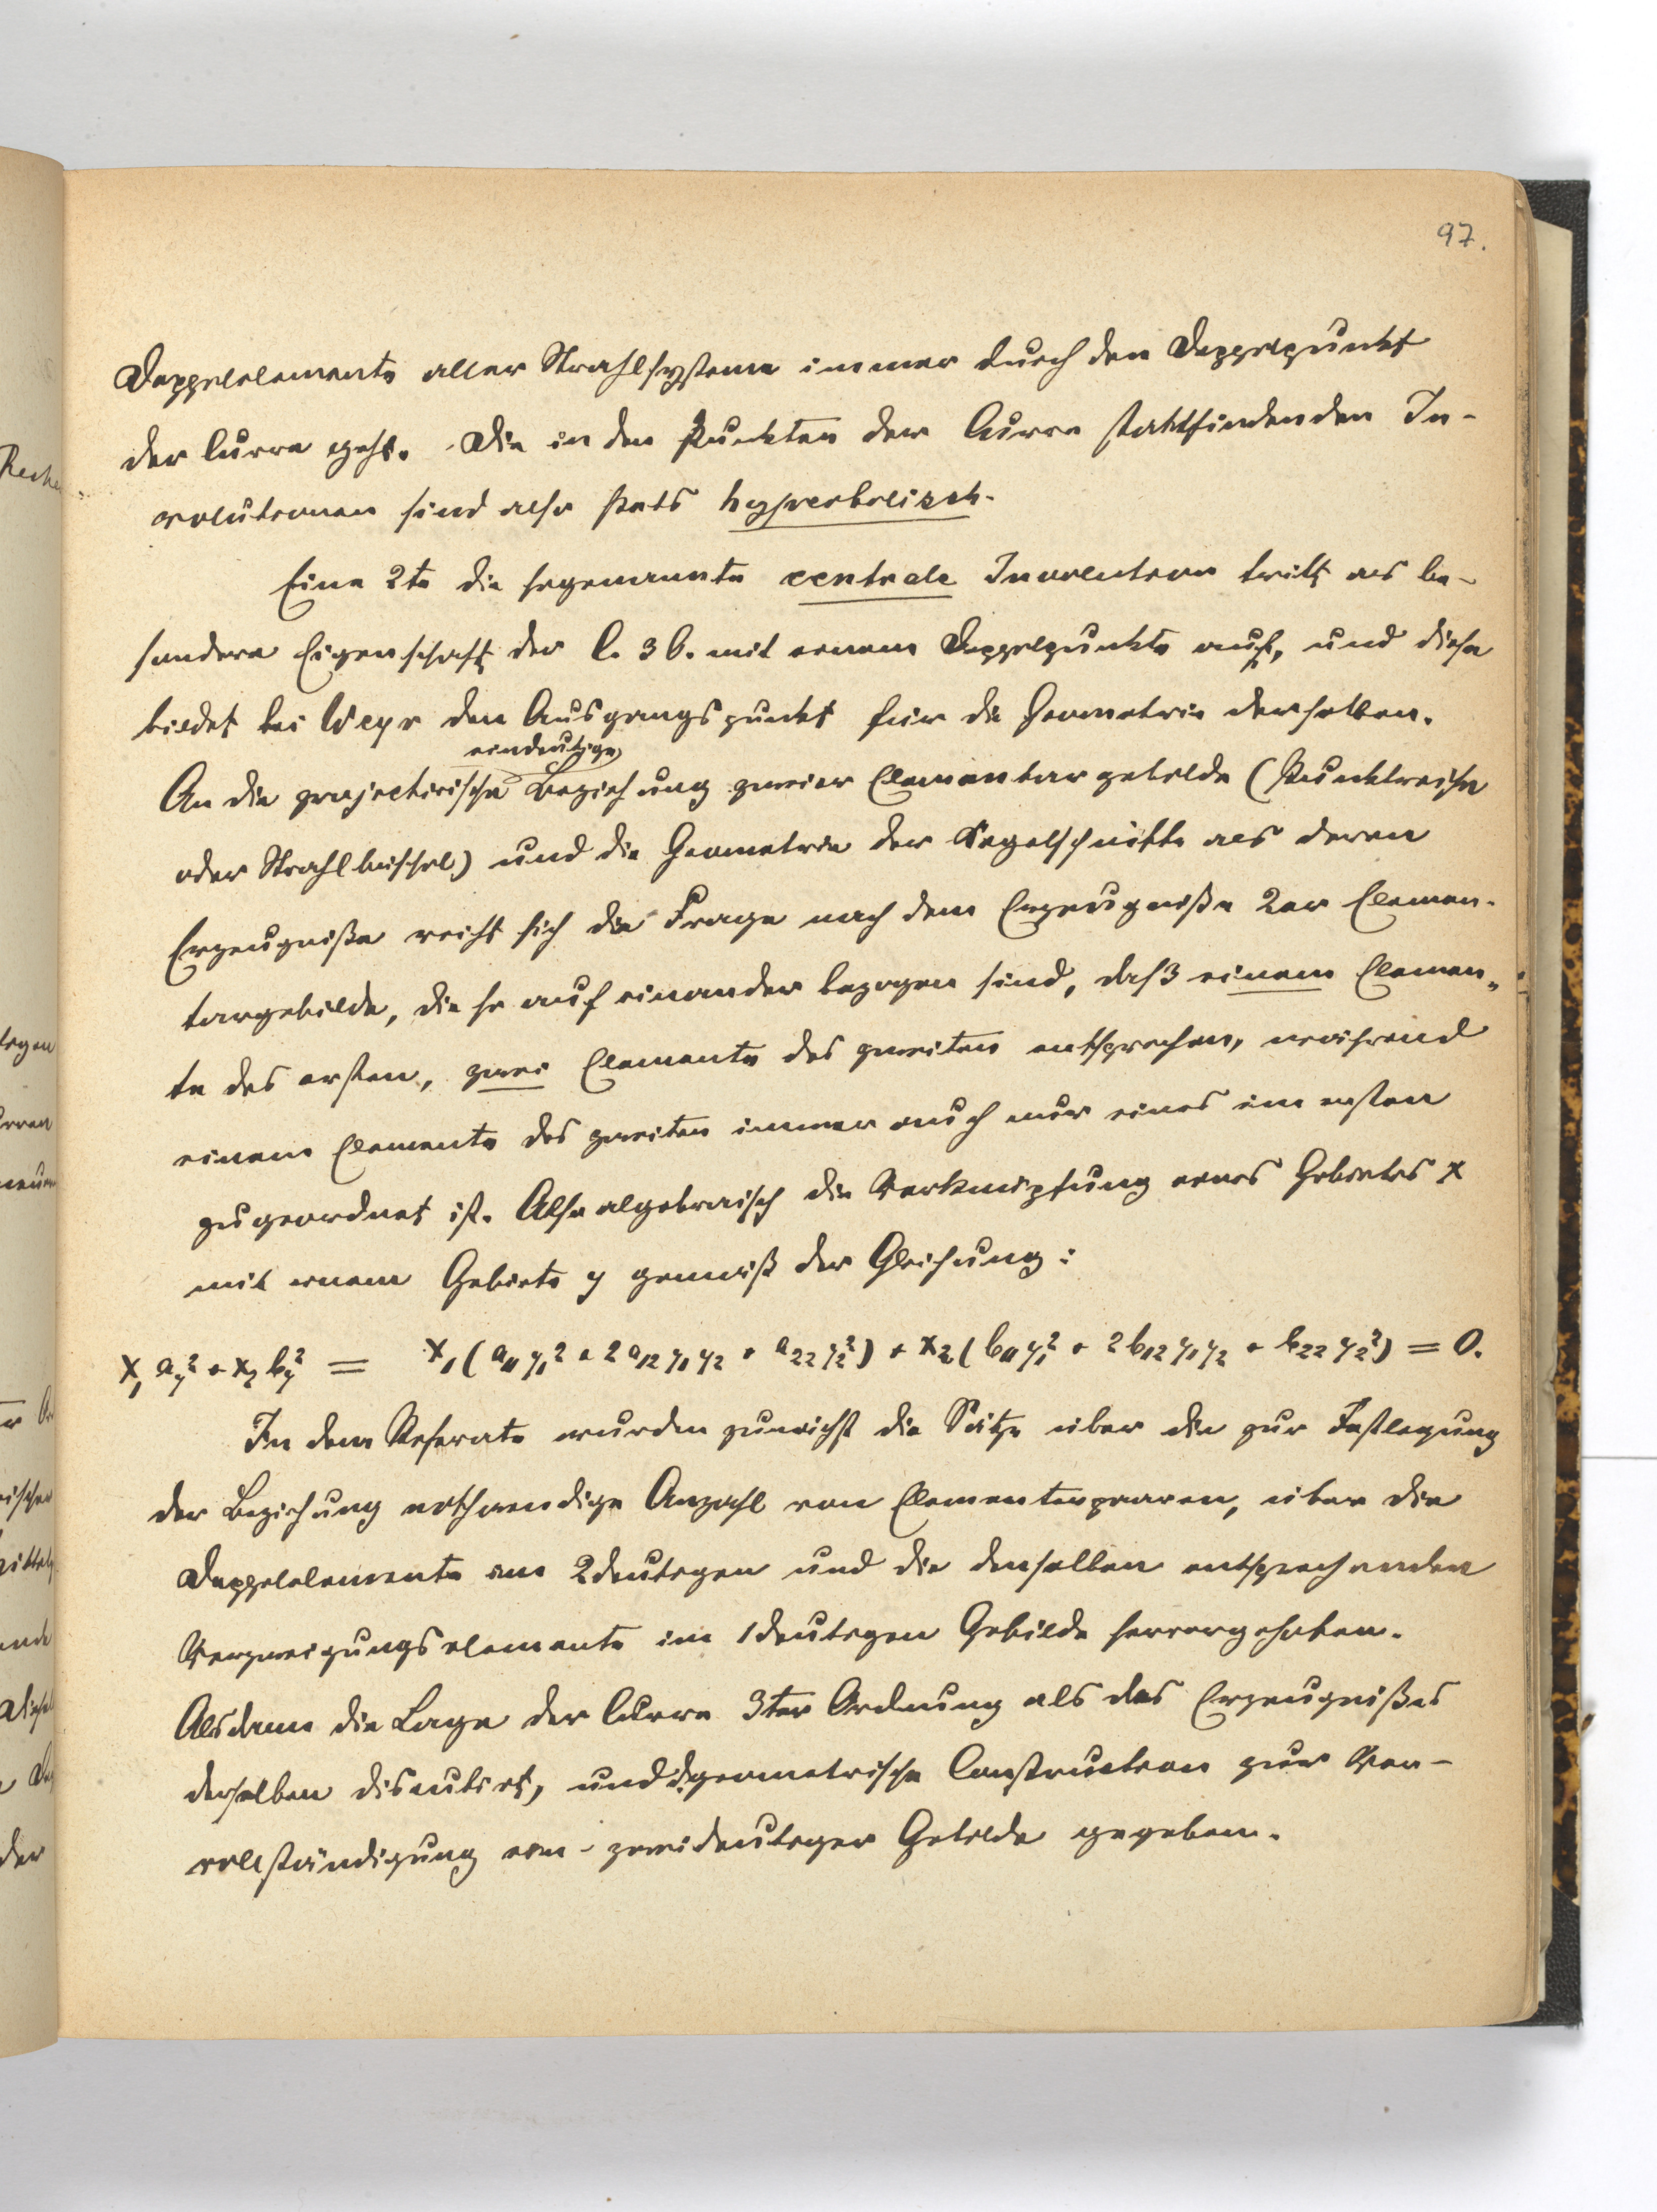 97.
Doppelelemente aller Strahlsysteme immer durch den Doppelpunkt
der Curve geht. Die in den Punkten der Curve stattfindenden In-
volutionen sind also stets hyperbolisch.
Eine 2te die sogenannte centrale Involution tritt als be-
sondere Eigenschaft der C. 3 O. mit einem Doppelpunkte auf, und diese
bildet bei Weyr den Ausgangspunkt für die Geometrie derselben.
eindeutige
An die projectivische Beziehung zweier Elementargebilde (Punktreihe
oder Strahlbüschel) und die Geometrie der Kegelschnitte als deren
Erzeugniße reiht sich die Frage nach dem Erzeugniße 2er Elemen-
targebilde, die so auf einander bezogen sind, daß einem Elemen-
te des ersten, zwei Elemente des zweiten entsprechen, während
einem Elemente des zweiten immer auch nur eines im ersten
zugeordnet ist. Also algebraisch die Verknüpfung eines Gebietes x
mit einem Gebiete y gemäß der Gleichung:
x₁ a_y² + x₂ b_y² = x₁ (a₁₁ y₁² + 2 a₁₂ y₁ y₂ + a₂₂ y₂²) + x₂ (b₁₁ y₁² + 2 b₁₂ y₁ y₂ + b₂₂ y₂²) = 0.
In dem Referate wurden zunächst die Sätze über die zur Festlegung
der Beziehung nothwendige Anzahl von Elementenpaaren, über die
Doppelelemente im 2deutigen und die denselben entsprechenden
Verzweigungselemente im 1deutigen Gebilde hervorgehoben.
Alsdann die Lage der Curve 3ter Ordnung als des Erzeugnißes
derselben discutirt, und d. geometrische Construction zur Ver-
vollständigung ein-zweideutiger Gebilde gegeben.